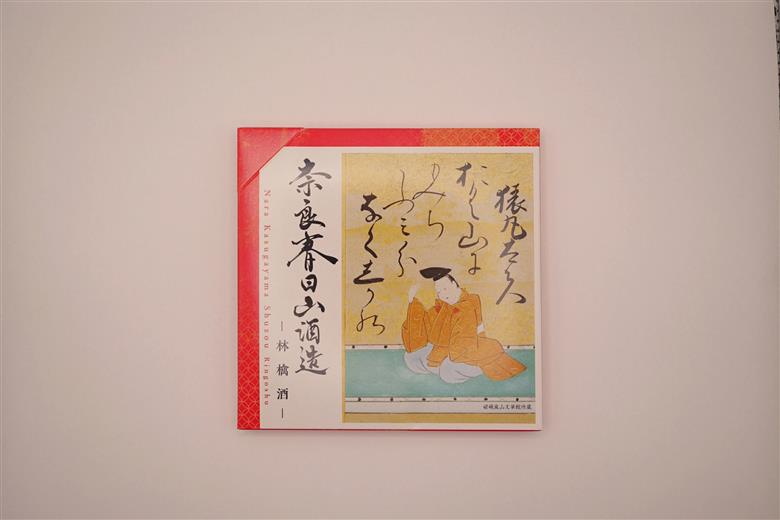 奈良春日山酒造
―林檎酒―
Nara Kasugayama Shuzou Ringoshu
猿丸大夫
おく山に
もみち
ふみ分
なく志かの
嵯峨嵐山文華館所蔵